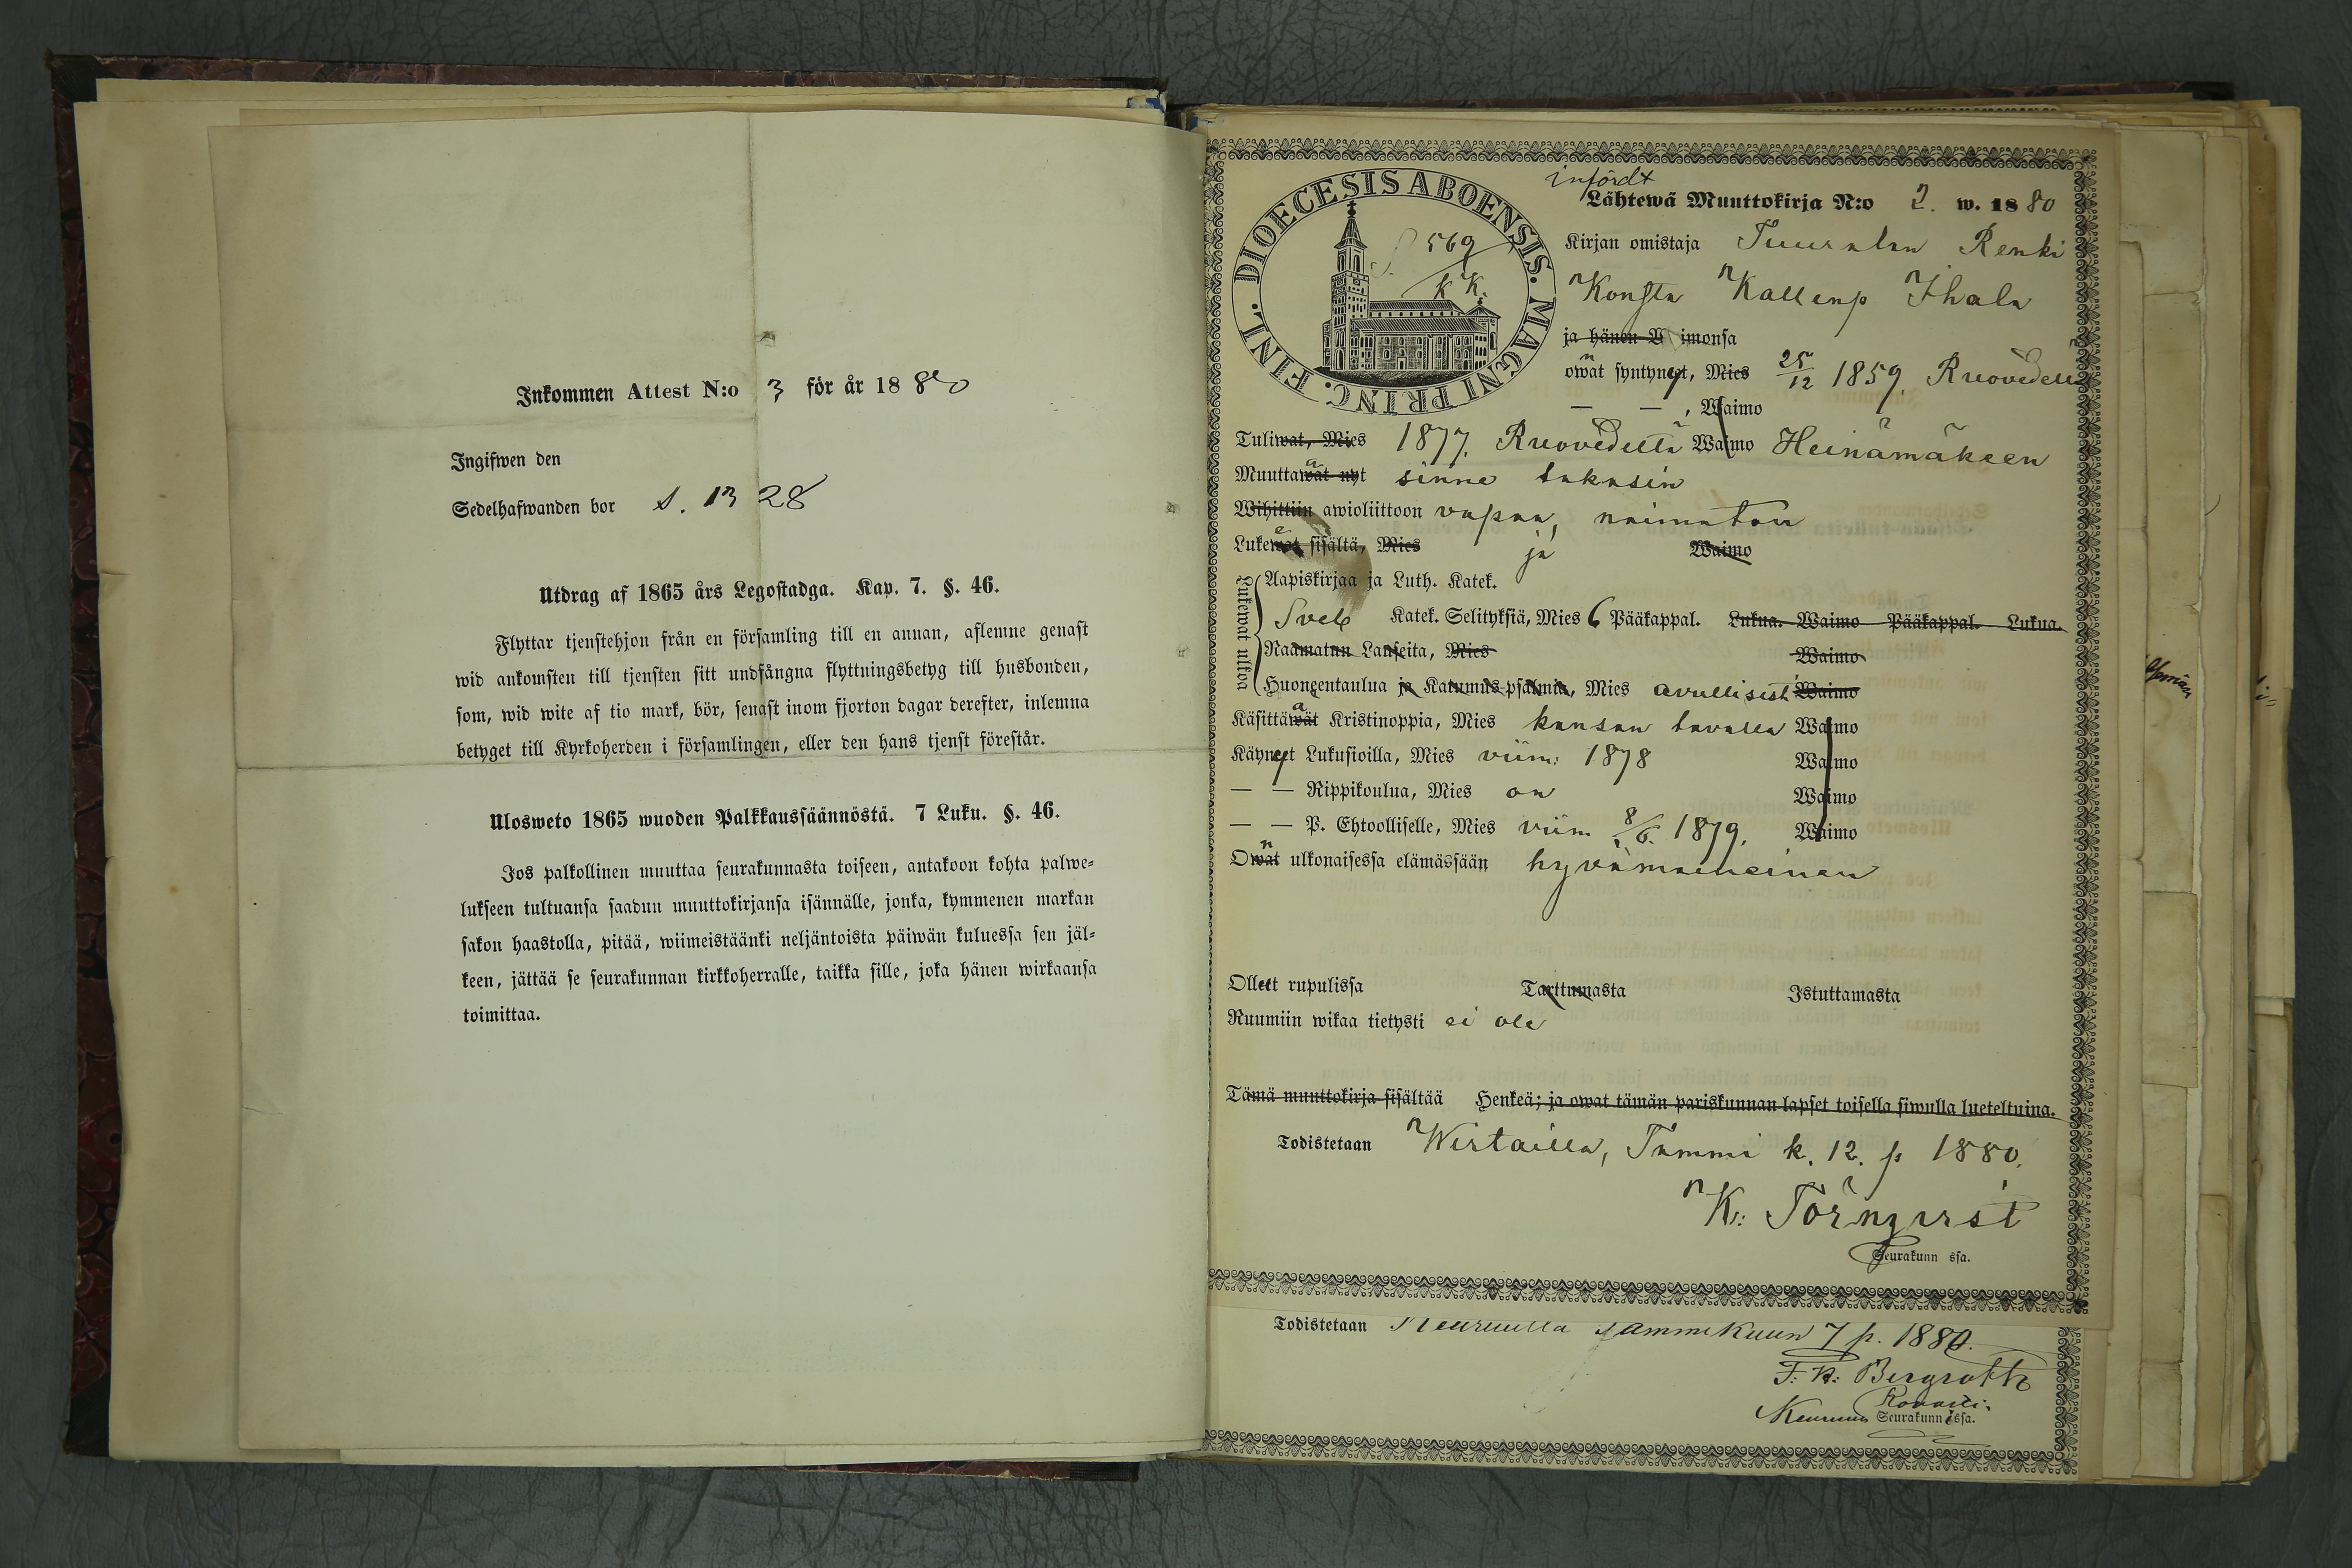 Inkommen Attest N:o 3 för år 1880
Ingifwen den
Sedelhafwanden bor s. 1328
Utdrag af 1865 års Legostadga. Kap. 7. §. 46.
Flyttar tjenstehjon från en församling till en annan, aflemne genast
wid ankomsten till tjensten sitt undfångna flyttningsbetyg till husbonden,
som, wid wite af tio mark, bör, senast inom fjorton dagar derefter, inlemna
betyget till Kyrkoherden i församlingen, eller den hans tjenst förestår.
Ulosweto 1865 wuoden Palkkaussäännöstä. 7 Luku. §. 46.
Jos palkollinen muuttaa seurakunnasta toiseen, antakoon kohta palwe-
lukseen tultuansa saadun muuttokirjansa isännälle, jonka, kymmenen markan
sakon haastolla, pitää, wiimeistäänki neljäntoista päiwän kuluessa sen jäl-
keen, jättää se seurakunnan kirkkoherralle, taikka sille, joka hänen wirkaansa
toimittaa.
DIOECESIS ABOENSIS. MAGNI PRINC. FINL.
569
K K.
infördt
Lähtewä Muuttokirja N:o 2. w. 1880
Kirjan omistaja Tuuralan Renki
Konsta Kallenp Ihala
ja hänen W imonsa
owat syntyneet, Mies 25/12 1859 Ruovedellä
— — , Waimo
Tuliwat, Mies 1877. Ruovedeltä Waimo Heinämäkeen
Muuttawat nyt sinne takasin
Wihittiin awioliittoon vapaa, naimaton
Lukewat sisältä, Mies ja Waimo
Lukewat ulkoa
Aapiskirjaa ja Luth. Katek.
Sveb Katek. Selityksiä, Mies 6 Pääkappal. Lukua. Waimo Pääkappal. Lukua.
Raamatun Lauseita, Mies Waimo
Huoneentaulua ja Katumus-psalmia, Mies avullisest Waimo
Käsittäwät Kristinoppia, Mies kansan tavalla Waimo
Käyneet Lukusioilla, Mies viim: 1878 Waimo
— — Rippikoulua, Mies on Waimo
— — P. Ehtoolliselle, Mies viim 8/6. 1879. Waimo
Owat ulkonaisessa elämässään hyvämaineinen
Olleet rupulissa Tarttumasta Istuttamasta
Ruumiin wikaa tietysti ei ole
Tämä muuttokirja sisältää Henkeä; ja owat tämän pariskunnan lapset toisella siwulla lueteltuina.
Todistetaan Wirtailla, Tammi k. 12. p 1880.
K: Törnqvist
Seurakunn ssa.
Todistetaan Keuruulla Tammikuun 7 p. 1880.
F. K: Bergroth
Rovasti.
Keuruun Seurakunnissa.